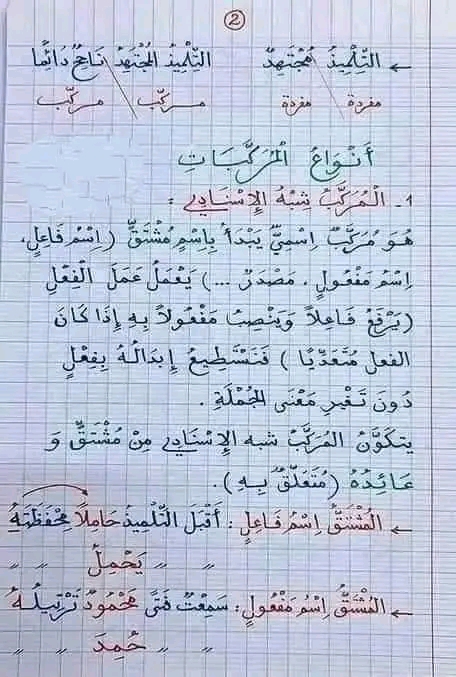 2
← التِّلْمِيذُ \ مُجْتَهِدٌ التِّلْمِيذُ المُجْتَهِدُ \ نَاجِحٌ دَائِمًا
مفردة مفردة مركّب مركّب
أَنْوَاعُ المُرَكَّبَاتِ
1- المُرَكَّبُ شِبْهُ الإِسْنَادِي :
هُوَ مُرَكَّبٌ اِسْمِيٌّ يَبْدَأُ بِاِسْمٍ مُشْتَقٍّ (اِسْمُ فَاعِلٍ،
اِسْمُ مَفْعُولٍ، مَصْدَرٌ ...) يَعْمَلُ عَمَلَ الفِعْلِ
(يَرْفَعُ فَاعِلاً وَيَنْصِبُ مَفْعُولاً بِهِ إِذَا كَانَ
الفعل مُتَعَدِّيًا) فَنَسْتَطِيعُ إِبْدَالَهُ بِفِعْلٍ
دُونَ تَغْيِيرِ مَعْنَى الجُمْلَةِ.
يتكَوَّنُ المُرَكَّبُ شبه الإِسْنَادِي مِنْ مُشْتَقٍّ وَ
عَائِدُهُ (مُتَعَلَّقٌ بِهِ).
← المُشْتَقُّ اِسْمُ فَاعِلٍ : أَقْبَلَ التِّلْمِيذُ حَامِلاً مِحْفَظَتَهُ
" " يَحْمِلُ " "
← المُشْتَقُّ اِسْمُ مَفْعُولٍ : سَمِعْتُ فَتًى مَحْمُودٌ تَرْتِيلُهُ
" " حُمِدَ " "